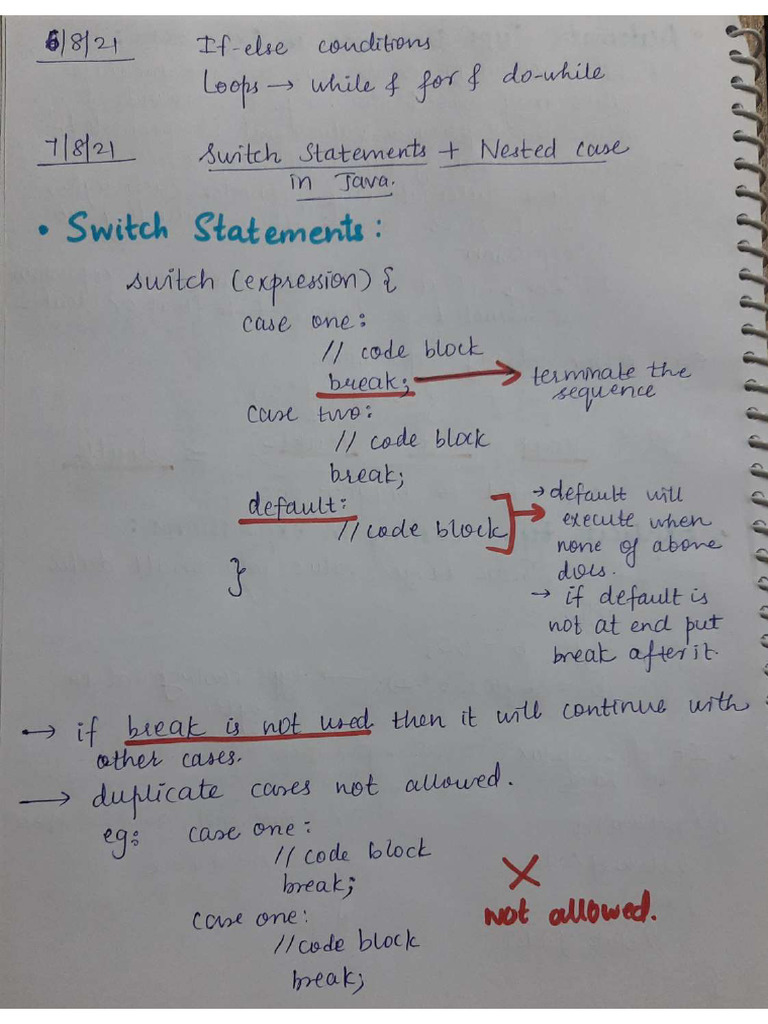 6/8/21 If-else conditions
Loops → while & for & do-while
7/8/21 Switch Statements + Nested case
in Java.
• Switch Statements:
switch (expression) {
case one:
// code block
break; → terminate the
sequence
case two:
// code block
break;
default:
// code block
}
→ default will
execute when
none of above
does.
→ if default is
not at end put
break after it.
→ if break is not used then it will continue with
other cases.
→ duplicate cases not allowed.
eg: case one:
// code block
break;
case one:
// code block
break;
X
not allowed.